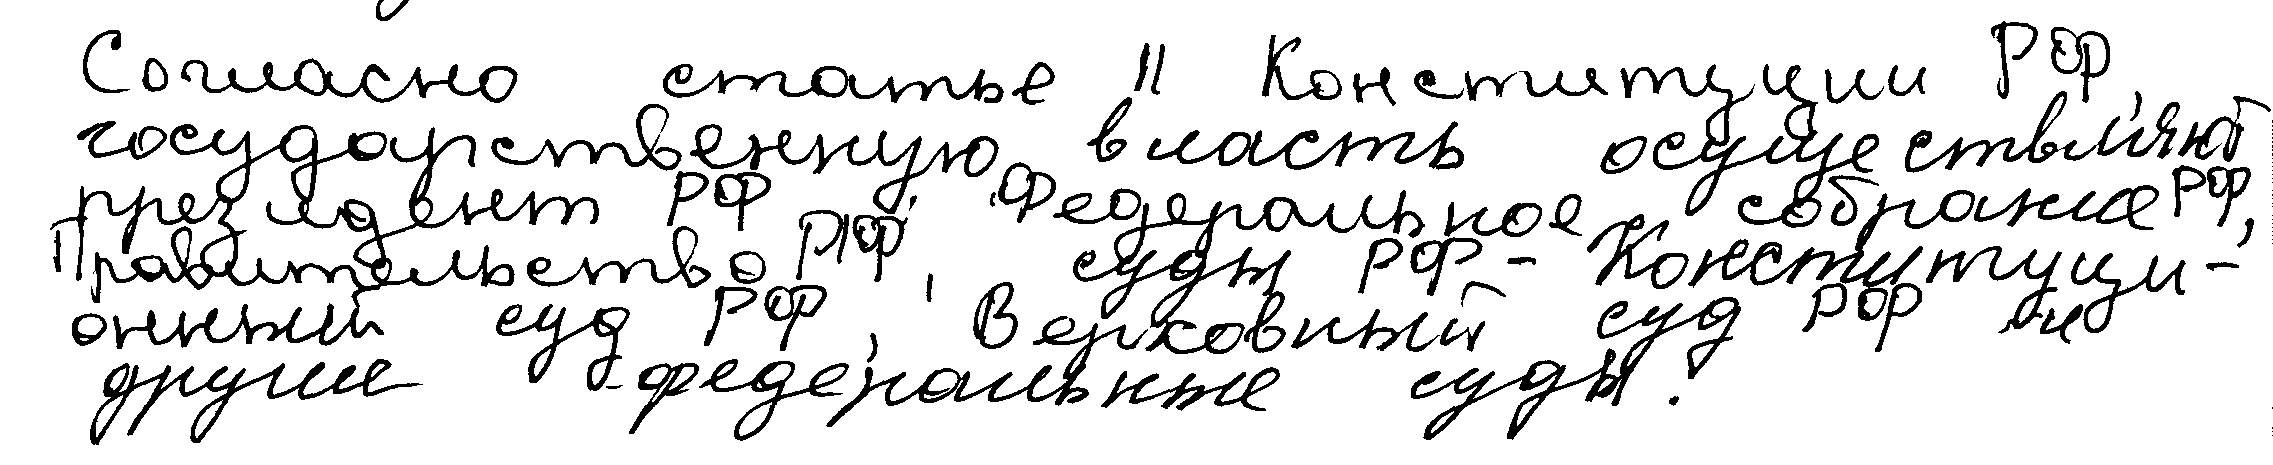 Согласно статье 11 Конституции РФ,
государственную власть осуществляют
президент РФ, Федеральное собрание РФ,
Правительство РФ, суды РФ - Конституци-
онный суд РФ, Верховный суд РФ и
другие федеральные суды.